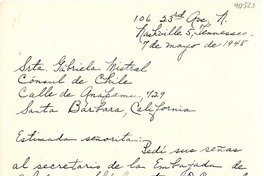 106 23rd Ave. N.
Nashville 5, Tennessee.
7 de mayo de 1948
Srta. Gabriela Mistral
Cónsul de Chile
Calle de Anapamu, 729
Santa Bárbara, California
Estimada señorita:
Pedí sus señas
al secretario de la Embajada de